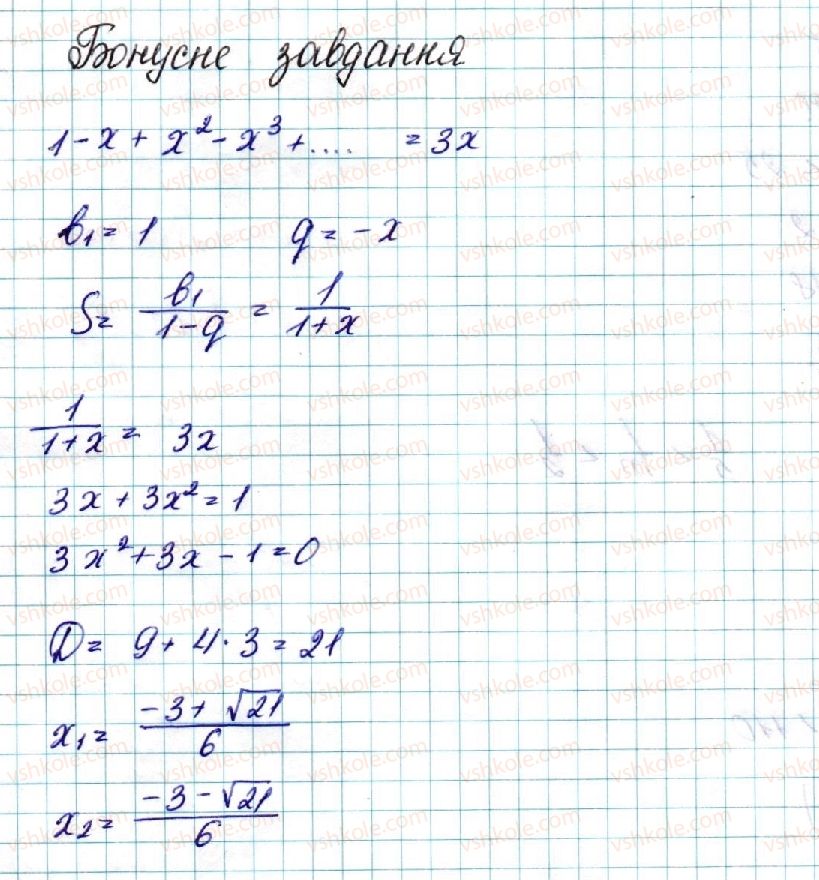 Бонусне завдання
1 - x + x² - x³ + .... = 3x
b₁ = 1 q = -x
S = b₁/(1-q) = 1/(1+x)
1/(1+x) = 3x
3x + 3x² = 1
3x² + 3x - 1 = 0
D = 9 + 4·3 = 21
x₁ = (-3 + √21)/6
x₂ = (-3 - √21)/6
vshkole.com